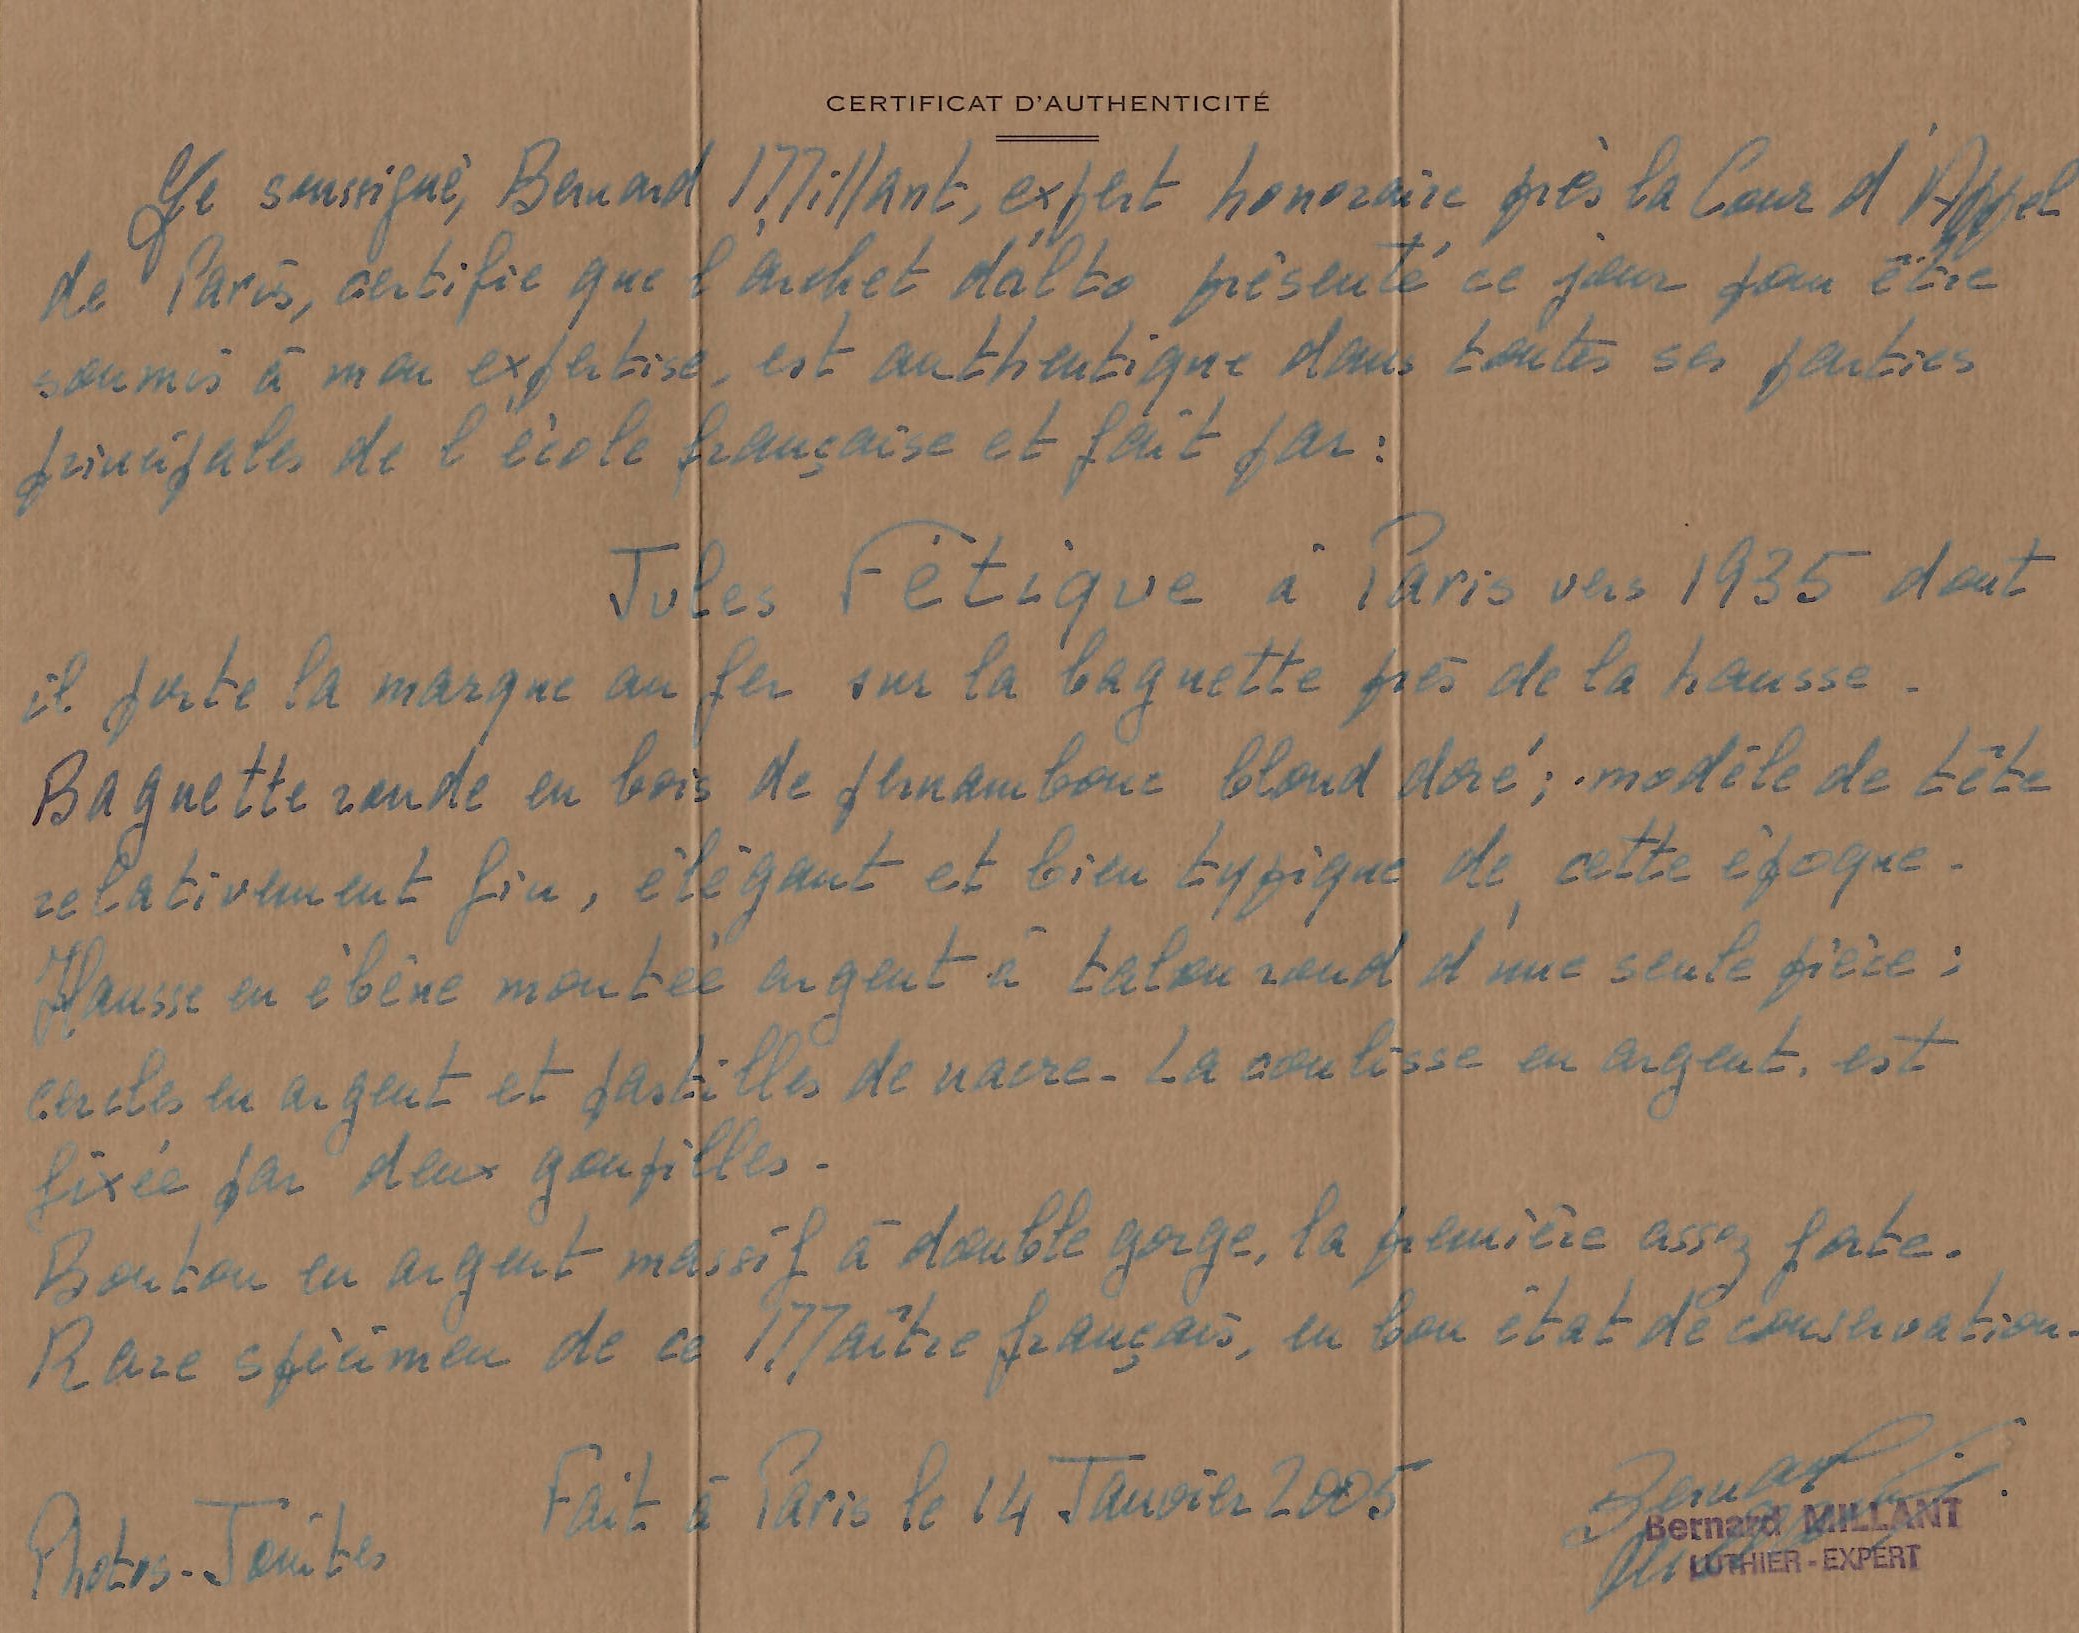 CERTIFICAT D'AUTHENTICITÉ
Je soussigné, Bernard Millant, expert honoraire près la Cour d'Appel
de Paris, certifie que l'archet d'alto présenté ce jour pour être
soumis à mon expertise, est authentique dans toutes ses parties
principales de l'école française et fait par :
Jules Fétique à Paris vers 1935 dont
il porte la marque au fer sur la baguette près de la hausse.
Baguette ronde en bois de pernambouc blond doré ; modèle de tête
relativement fin, élégant et bien typique de cette époque.
Hausse en ébène montée argent à talon rond d'une seule pièce ;
cercles en argent et pastilles de nacre. La coulisse en argent, est
fixée par deux goupilles.
Bouton en argent massif à double gorge, la première assez forte.
Rare spécimen de ce Maître français, en bon état de conservation.
Fait à Paris le 14 Janvier 2005
Photos-Jointes
Bernard Millant
Bernard MILLANT
LUTHIER - EXPERT